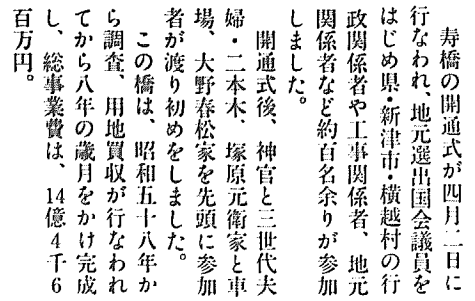 寿橋の開通式が四月二日に
行なわれ、地元選出国会議員を
はじめ県・新津市・横越村の行
政関係者や工事関係者、地元
関係者など約百名余りが参加
しました。
開通式後、神官と三世代夫
婦・二本木、塚原元衛家と車
場、大野春松家を先頭に参加
者が渡り初めをしました。
この橋は、昭和五十八年か
ら調査、用地買収が行なわれ
てから八年の歳月をかけ完成
し、総事業費は、14億4千6
百万円。